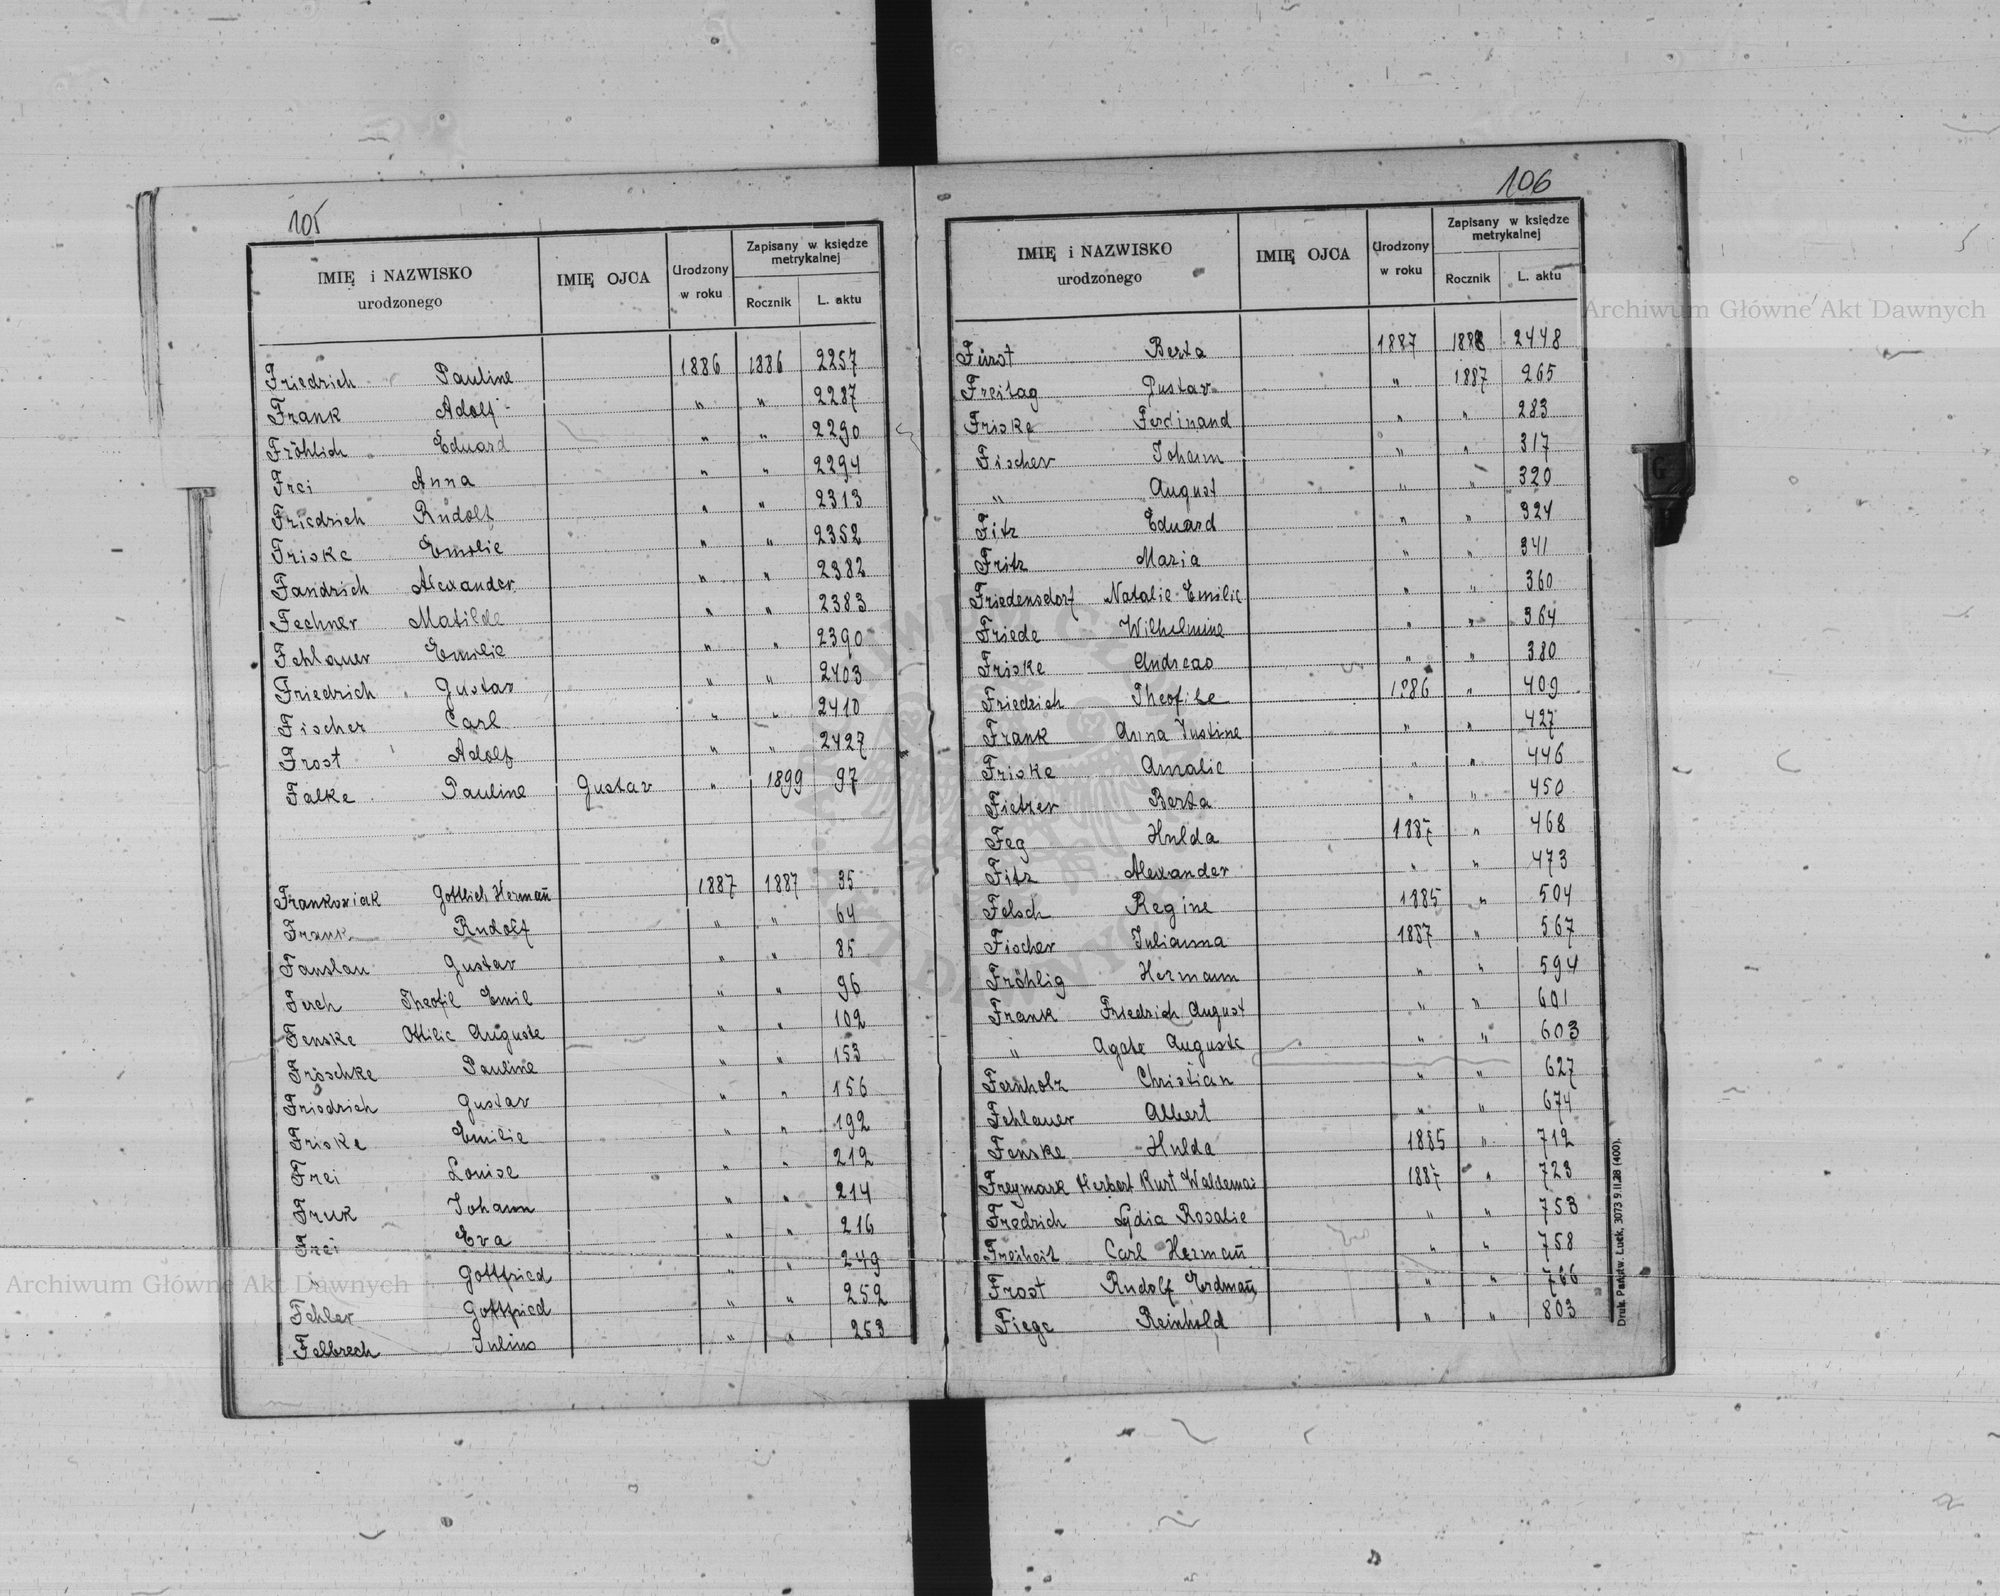 105
IMIĘ i NAZWISKO urodzonego IMIĘ OJCA Urodzony w roku Zapisany w księdze metrykalnej Rocznik L. aktu
Friedrich Pauline 1886 1886 2257
Frank Adolf " " 2287
Fröhlich Eduard " " 2290
Frei Anna " " 2294
Friedrich Rudolf " " 2313
Friske Emilie " " 2352
Fandrich Alexander " " 2382
Fechner Matilde " " 2383
Fehlauer Emilie " " 2390
Friedrich Gustav " " 2403
Fischer Carl " " 2410
Frost Adolf " " 2427
Falke Pauline Gustav " 1899 97
Frankowiak Gottlieb Hermañ 1887 1887 35
Frank Rudolf " " 64
Fanslau Gustav " " 85
Ferch Theofil Emil " " 96
Fenske Ottilie Auguste " " 102
Fröschke Pauline " " 153
Friedrich Gustav " " 156
Friske Emilie " " 192
Frei Louise " " 212
Fruk Johann " " 214
Frei Eva " " 216
" Gottfried " " 249
Fehler Gottfried " " 252
Felbrech Julius " " 253
106
IMIĘ i NAZWISKO urodzonego IMIĘ OJCA Urodzony w roku Zapisany w księdze metrykalnej Rocznik L. aktu
Fürst Berta 1887 1888 2448
Freitag Gustav " 1887 265
Friske Ferdinand " " 283
Fischer Johann " " 317
" August " " 320
Fitz Eduard " " 324
Fritz Maria " " 341
Friedensdorf Natalie Emilie " " 360
Friede Wilhelmine " " 364
Friske Andreas " " 380
Friedrich Theofile 1886 " 409
Frank Anna Justine " " 427
Friske Amalie " " 446
Fietzer Berta " " 450
Feg Hulda 1887 " 468
Fitz Alexander " " 473
Felsch Regine 1885 " 504
Fischer Julianna 1887 " 567
Fröhlig Hermann " " 594
Frank Friedrich August " " 601
" Agate Auguste " " 603
Fernholz Christian " " 627
Fehlauer Albert " " 674
Fenske Hulda 1885 " 712
Freymark Herbert Kurt Waldemar 1887 " 723
Fredrich Lydia Rosalie " " 753
Freiheit Carl Hermañ " " 758
Frost Rudolf Erdmañ " " 766
Fiege Reinhold " " 803
Druk. Państw. Łuck, 3073 9.II.28 (400).
Archiwum Główne Akt Dawnych
Archiwum Główne Akt Dawnych